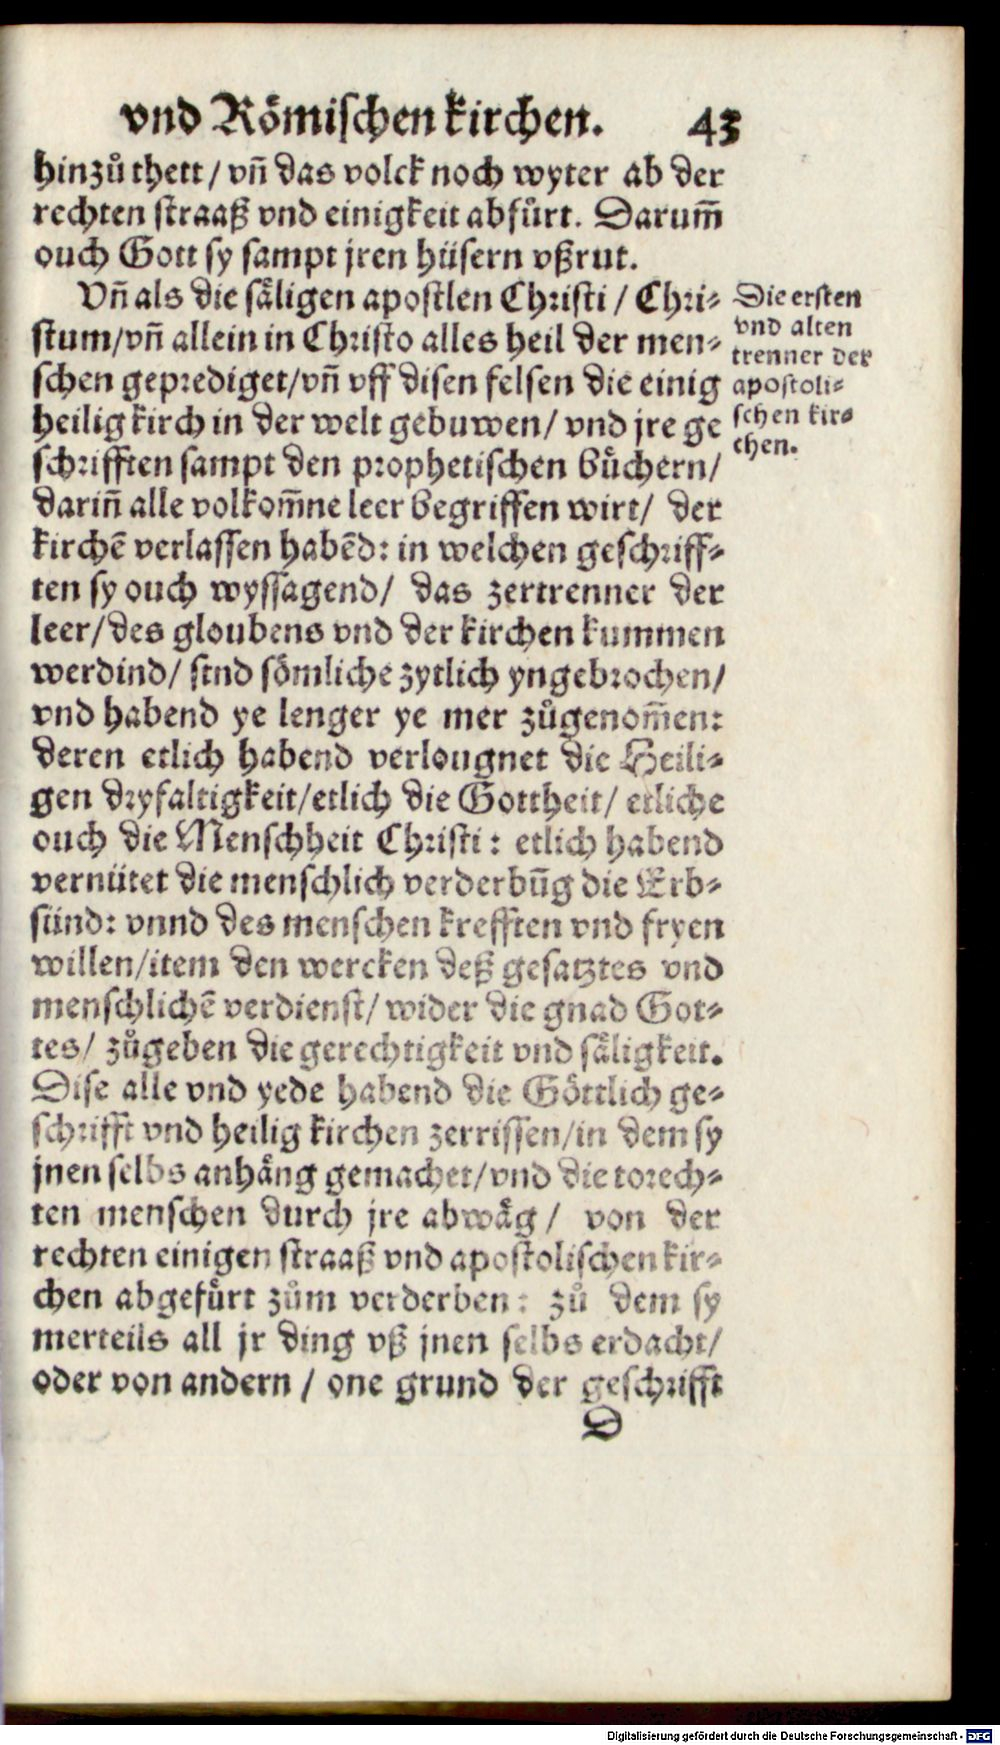 vnd Römischen kirchen. 43
hinzů thett / vñ das volck noch wyter ab der
rechten straaß vnd einigkeit abfůrt. Darum̃
ouch Gott sy sampt jren hüsern vßrut.
Vñ als die säligen apostlen Christi / Chri⸗
stum/vñ allein in Christo alles heil der men⸗
schen geprediget/vñ vff disen felsen die einig
heilig kirch in der welt gebuwen/ vnd jre ge
schrifften sampt den prophetischen bůchern/
dariñ alle volkom̃ne leer begriffen wirt/ der
kirchẽ verlassen habẽd: in welchen geschriff⸗
ten sy ouch wyssagend/ das zertrenner der
leer/des gloubens vnd der kirchen kummen
werdind/ sind sömliche zytlich yngebrochen/
vnd habend ye lenger ye mer zůgenom̃en:
deren etlich habend verlougnet die Heili⸗
gen dryfaltigkeit/etlich die Gottheit/ etliche
ouch die Menschheit Christi: etlich habend
vernütet die menschlich verderbũg die Erb⸗
sünd: vnnd des menschen krefften vnd fryen
willen/item den wercken deß gesatztes vnd
menschlichẽ verdienst/ wider die gnad Got⸗
tes/ zůgeben die gerechtigkeit vnd säligkeit.
Dise alle vnd yede habend die Göttlich ge⸗
schrifft vnd heilig kirchen zerrissen/in dem sy
jnen selbs anhäng gemachet/vnd die torech⸗
ten menschen durch jre abwäg / von der
rechten einigen straaß vnd apostolischen kir⸗
chen abgefůrt zům verderben: zů dem sy
merteils all jr ding vß jnen selbs erdacht/
oder von andern / one grund der geschrifft
D
Die ersten
vnd alten
trenner der
apostoli⸗
schen kir⸗
chen.
Digitalisierung gefördert durch die Deutsche Forschungsgemeinschaft - DFG